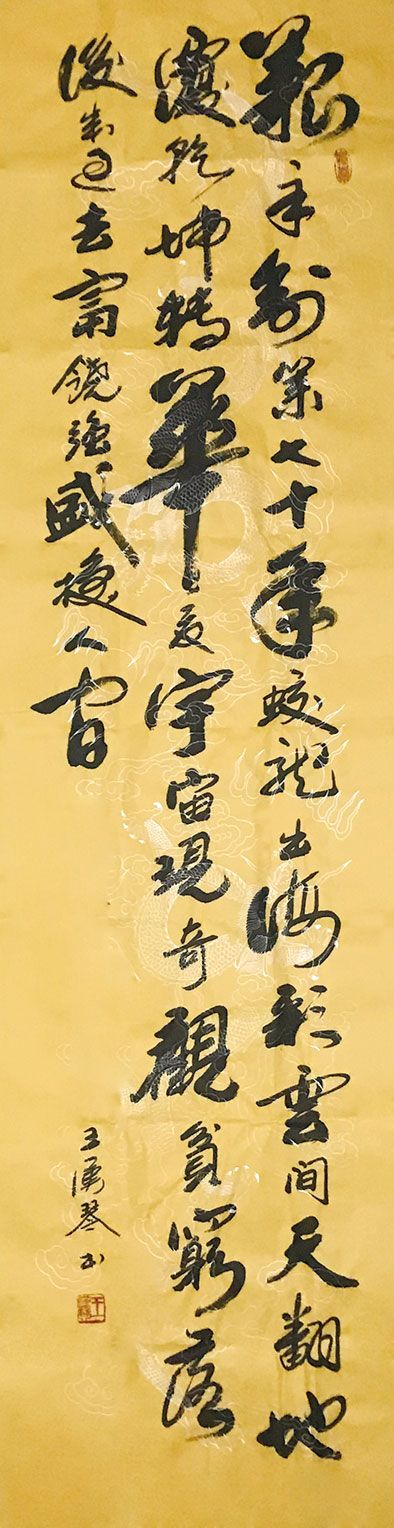 艱辛創業七十年蛟龍出海彩雲間天翻地
覆乾坤轉華夏宇宙現奇觀貧窮落
後成過去富饒強盛換人間
王湧琴书